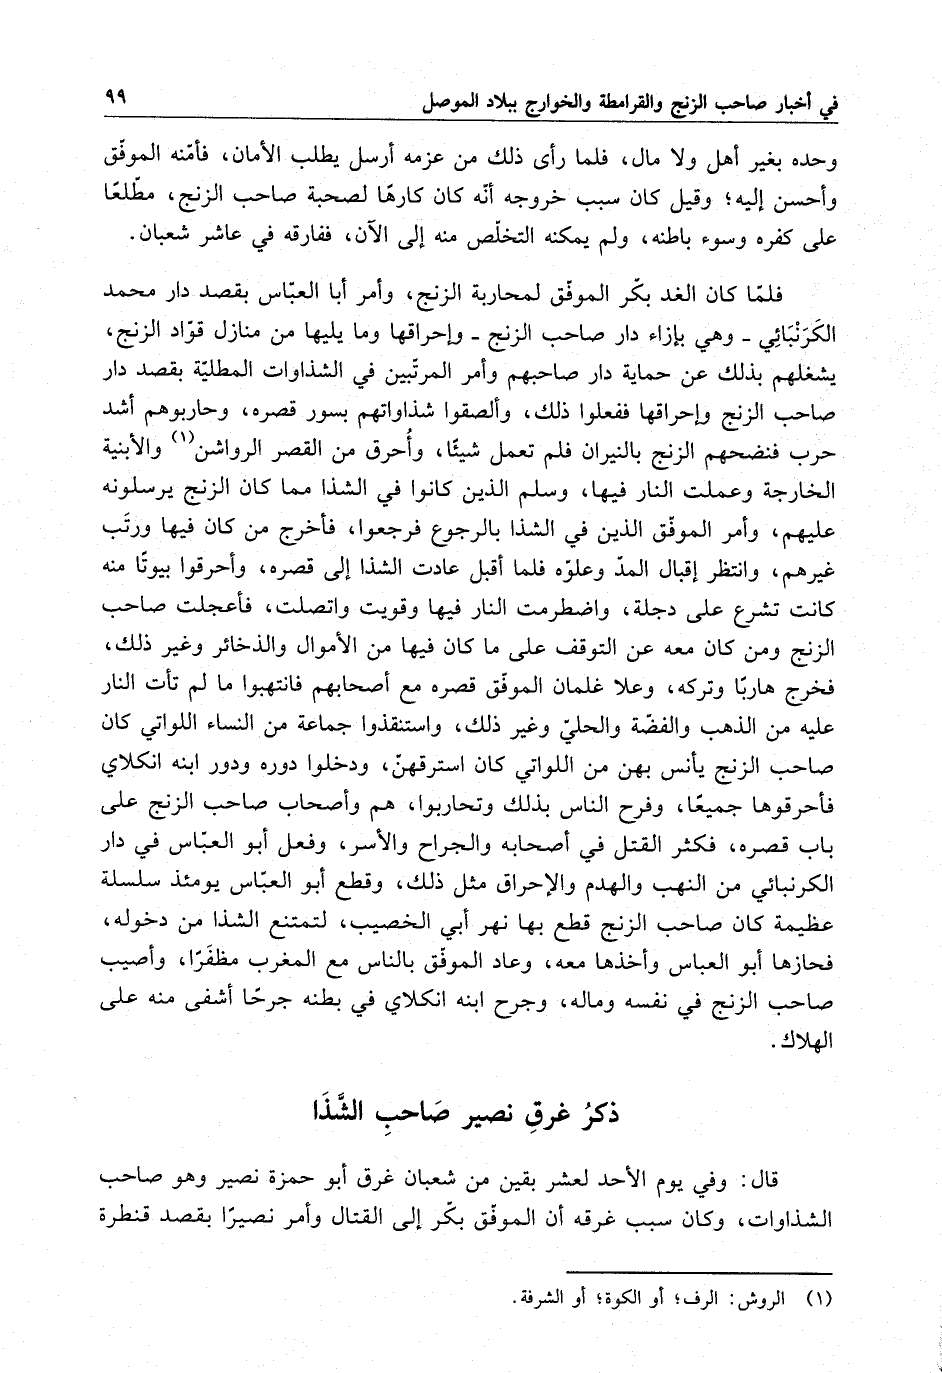 في أخبار صاحب الزنج والقرامطة والخوارج ببلاد الموصل ٩٩
وحده بغير أهل ولا مال، فلما رأى ذلك من عزمه أرسل يطلب الأمان، فأمّنه الموفّق
وأحسن إليه؛ وقيل كان سبب خروجه أنّه كان كارهًا لصحبة صاحب الزنج، مطّلعًا
على كفره وسوء باطنه، ولم يمكنه التخلّص منه إلى الآن، ففارقه في عاشر شعبان.
فلمّا كان الغد بكّر الموفّق لمحاربة الزنج، وأمر أبا العبّاس بقصد دار محمد
الكَرَنْبَائِي - وهي بإزاء دار صاحب الزنج - وإحراقها وما يليها من منازل قوّاد الزنج،
يشغلهم بذلك عن حماية دار صاحبهم وأمر المرتّبين في الشذاوات المطليّة بقصد دار
صاحب الزنج وإحراقها ففعلوا ذلك، وألصقوا شذاواتهم بسور قصره، وحاربوهم أشد
حرب فنضحهم الزنج بالنيران فلم تعمل شيئًا، وأُحرق من القصر الرواشن(١) والأبنية
الخارجة وعملت النار فيها، وسلم الذين كانوا في الشذا مما كان الزنج يرسلونه
عليهم، وأمر الموفّق الذين في الشذا بالرجوع فرجعوا، فأخرج من كان فيها ورتَب
غيرهم، وانتظر إقبال المدّ وعلوّه فلما أقبل عادت الشذا إلى قصره، وأحرقوا بيوتًا منه
كانت تشرع على دجلة، واضطرمت النار فيها وقويت واتصلت، فأعجلت صاحب
الزنج ومن كان معه عن التوقف على ما كان فيها من الأموال والذخائر وغير ذلك،
فخرج هاربًا وتركه، وعلا غلمان الموفّق قصره مع أصحابهم فانتهبوا ما لم تأت النار
عليه من الذهب والفضّة والحليّ وغير ذلك، واستنقذوا جماعة من النساء اللواتي كان
صاحب الزنج يأنس بهن من اللواتي كان استرقهنّ، ودخلوا دوره ودور ابنه انكلاي
فأحرقوها جميعًا، وفرح الناس بذلك وتحاربوا، هم وأصحاب صاحب الزنج على
باب قصره، فكثر القتل في أصحابه والجراح والأسر، وفعل أبو العبّاس في دار
الكرنبائي من النهب والهدم والإحراق مثل ذلك، وقطع أبو العبّاس يومئذ سلسلة
عظيمة كان صاحب الزنج قطع بها نهر أبي الخصيب، لتمتنع الشذا من دخوله،
فحازها أبو العباس وأخذها معه، وعاد الموفّق بالناس مع المغرب مظفَرًا، وأصيب
صاحب الزنج في نفسه وماله، وجرح ابنه انكلاي في بطنه جرحًا أشفى منه على
الهلاك.
ذكرُ غرقِ نصير صَاحبِ الشَّذَا
قال: وفي يوم الأحد لعشر بقين من شعبان غرق أبو حمزة نصير وهو صاحب
الشذاوات، وكان سبب غرقه أن الموفّق بكّر إلى القتال وأمر نصيرًا بقصد قنطرة
(١) الروش: الرف؛ أو الكوة؛ أو الشرفة.